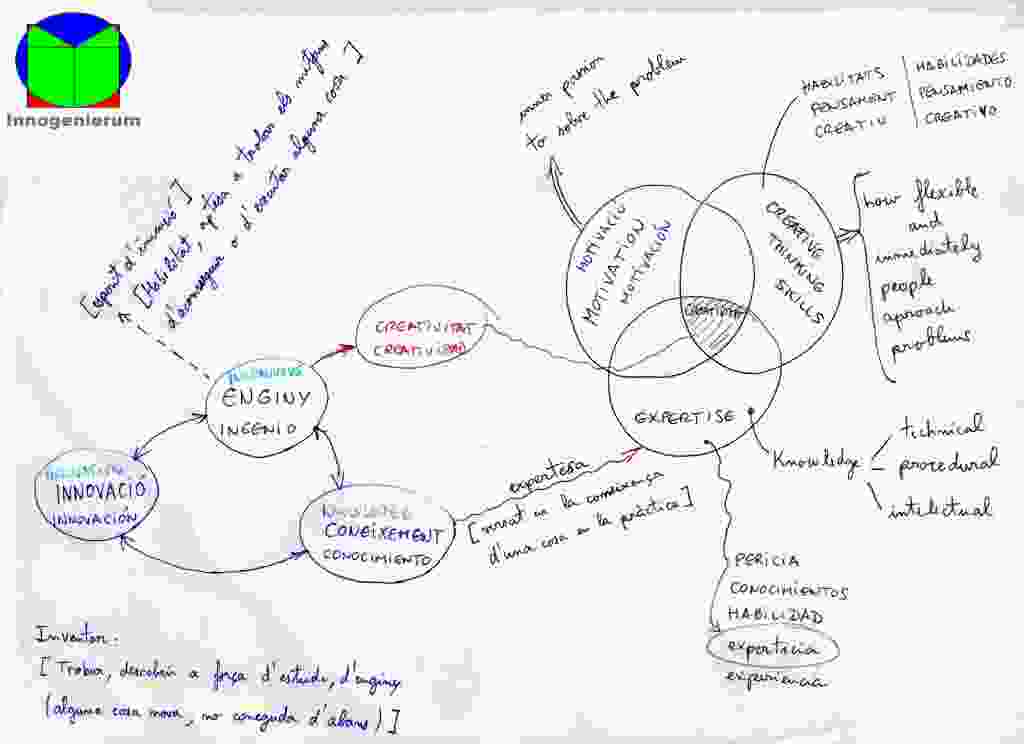 Innogenierum
[esperit d'invenció]
[Habilitat, aptesa a trobar els mitjans
d'aconseguir o d'executar alguna cosa]
inner passion
to solve the problem
HABILITATS
PENSAMENT
CREATIU
HABILIDADES
PENSAMIENTO
CREATIVO
MOTIVACIÓ
MOTIVATION
MOTIVACIÓN
CREATIVE
THINKING
SKILLS
how flexible
and
inmediately
people
aproach
problems
CREATIVITAT
CREATIVIDAD
ENGINY
INGENIO
EXPERTISE
Knowledge
technical
procedural
intelectual
INNOVACIÓ
INNOVACIÓN
KNOWLEDGE
CONEIXEMENT
CONOCIMIENTO
expertesa
[versat en la coneixença
d'una cosa en la pràctica]
PERICIA
CONOCIMIENTOS
HABILIDAD
experticia
experiencia
Inventor:
[Trobar, descobrir a força d'estudi, d'enginy
(alguna cosa nova, no coneguda d'abans)]